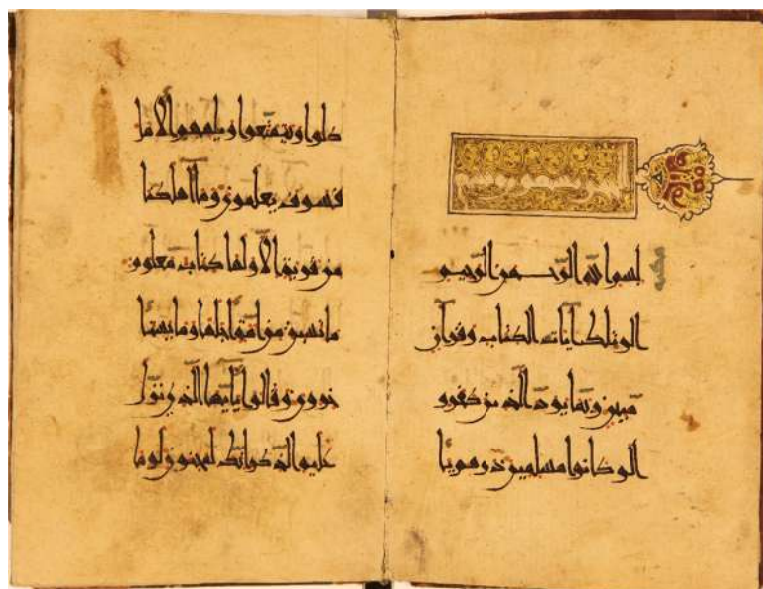 مكية
بسم الله الرحمن الرحيم
الر تلك آيات الكتاب وقرآن
مبين ربما يود الذين كفروا
لو كانوا مسلمين ذرهم يأ
كلوا ويتمتعوا ويلههم الأمل
فسوف يعلمون وما أهلكنا
من قرية إلا ولها كتاب معلوم
ما تسبق من أمة أجلها وما يستأ
خرون وقالوا يا أيها الذي نزل
عليه الذكر إنك لمجنون لو ما